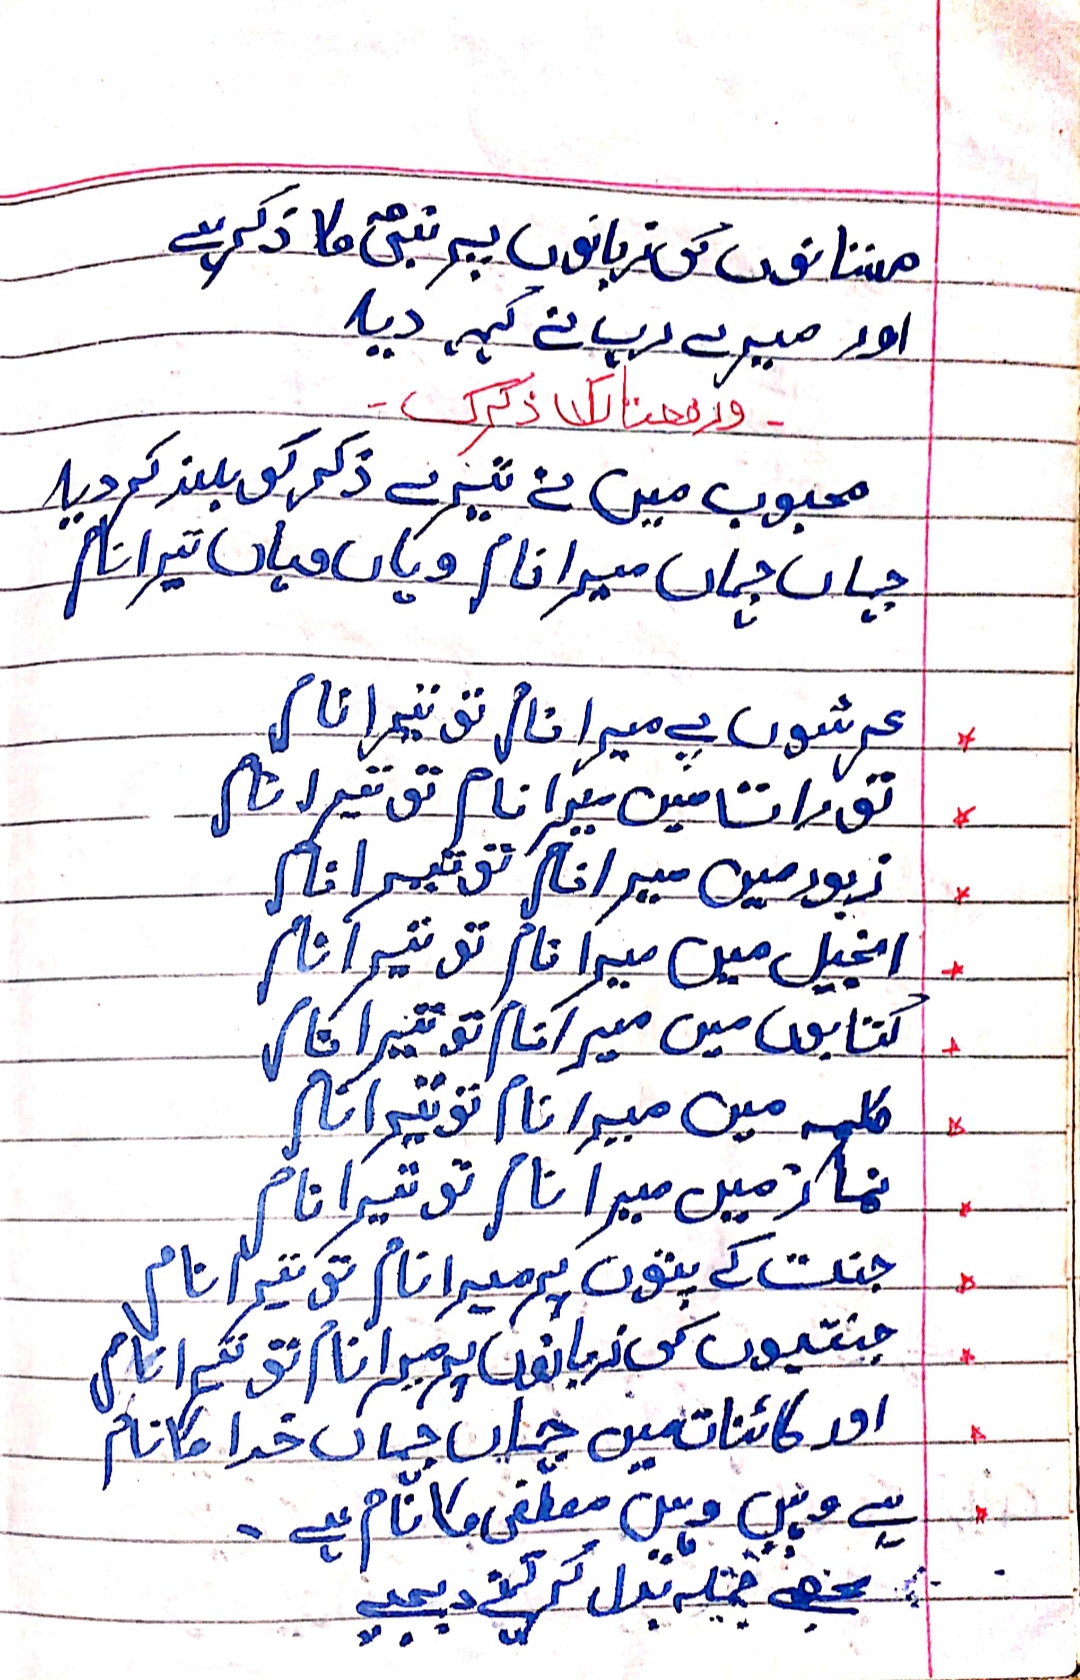 مستانوں کی زبانوں پہ نبیؐ کا ذکر ہے
اور میرے رب نے کہہ دیا
- ورفعنا لک ذکرک -
محبوب میں نے تیرے ذکر کو بلند کر دیا
جہاں جہاں میرا نام وہاں وہاں تیرا نام
* عرشوں پے میرا نام تو تیرا نام
* تورات میں میرا نام تو تیرا نام
* زبور میں میرا نام تو تیرا نام
* انجیل میں میرا نام تو تیرا نام
* کتابوں میں میرا نام تو تیرا نام
* کلمہ میں میرا نام تو تیرا نام
* نماز میں میرا نام تو تیرا نام
* جنت کے پتوں پر میرا نام تو تیرا نام
* جنتیوں کی زبانوں پر میرا نام تو تیرا نام
* اور کائنات میں جہاں جہاں خدا کا نام
* ہے وہیں وہیں مصطفی کا نام ہے ۔
مجھے جملہ بدل کر کہنے دیجیے